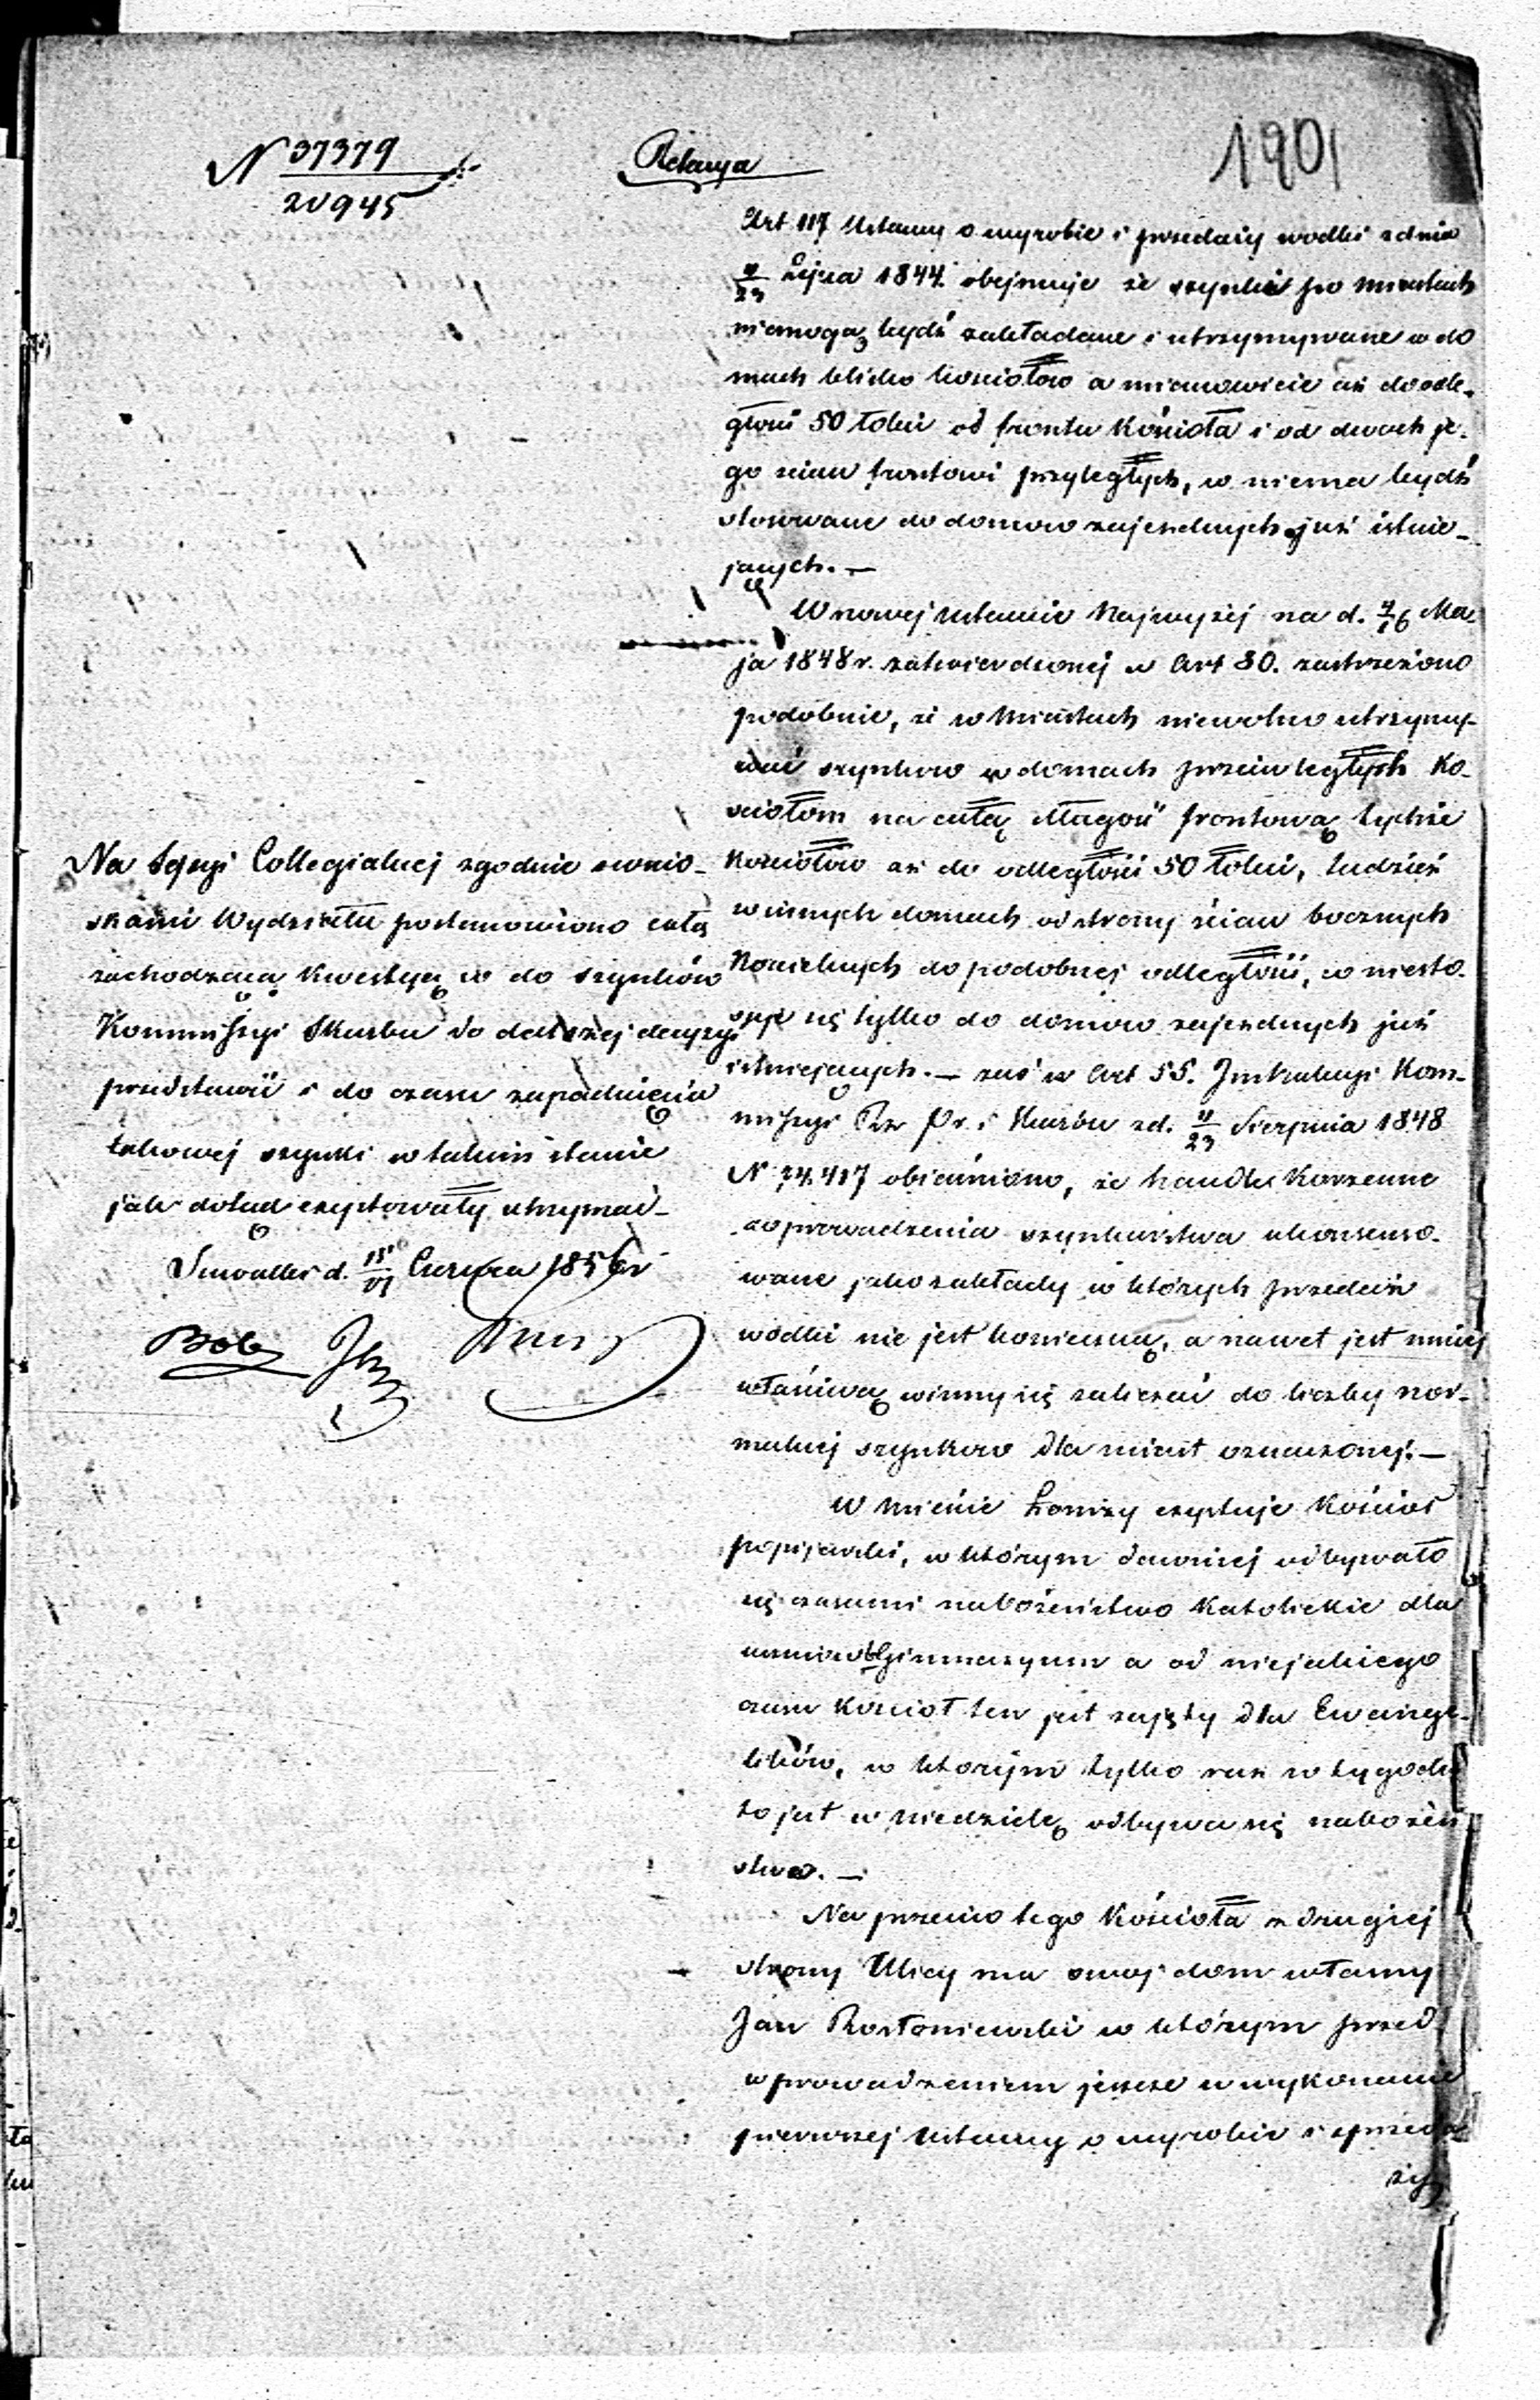 N 37379
20945
Relacya
1901
Art 117 Ustawy o wyrobie i przedaży wodki z dnia
11/23 Lipca 1844. obejmuje że szynki po miastach
niemogą bydź zakładane i utrzymywane w do
mach blisko kosciołow a mianowicie aż do odle-
głości 50 łokci od frontu Kościoła i od dwoch je-
go scian frontowi przyległych, co niema bydź
stosowane do domow zajezdnych już istnie-
jących. —
W nowej ustawie Najwyżej na d. 4/16 Ma-
ja 1848 r. zatwierdzonej w Art 80. zastrzeżono
podobnie, że w Miastach niewolno utrzymy-
wać szynkow w domach przeciwległych Ko-
sciołom na całą długość frontową tychże
Kosciołow aż do odległości 50 łokci, tudzież
w innych domach od strony ścian bocznych
Koscielnych do podobnej odległości, co niesto-
suje się tylko do domow zajezdnych już
istniejących. — zaś w Art 55. Instrukcyi Kom-
missyi Rz Pr. i Skarbu z d. 11/23 Sierpnia 1848
N 24.417 objaśniono, że handle Korzenne
do prowadzenia szynkarstwa ukonsenso-
wane jako zakłady w których przedaż
wodki nie jest konieczną, a nawet jest mniej
właściwą winny się zaliczać do liczby nor-
malnej szynkow dla miast oznaczonej. —
W Mieście Łomży exystuje Kościoł
popijarski, w którym dawniej odbywało
się czasami nabożeństwo Katolickie dla
uczniow Gimnazyum a od niejakiego
czasu Kościoł ten jest zajęty dla Ewange-
likόw, w ktorym tylko raz w tygodni
to jest w Niedzielę odbywa się nabożeń
stwo. —
Na przeciw tego Kościoła z drugiej
strony Ulicy ma swoj dom własny
Jan Rostoniewski w którym przed
wprowadzeniem jeszcze w wykonanie
pierwszej Ustawy o wyrobie i sprzeda
ży
Na Sessyi Collegialnej zgodnie z wnio-
skami Wydziału postanowiono całą
zachodzącą Kwestyą co do szynków
Kommissyi Skarbu do dalszej decyzyi
przedstawić i do czasu zapadnięcia
takowej szynki w takim stanie
jak dotąd exystowały utrzymać —
Suwałki d. Czerwca 1856 r